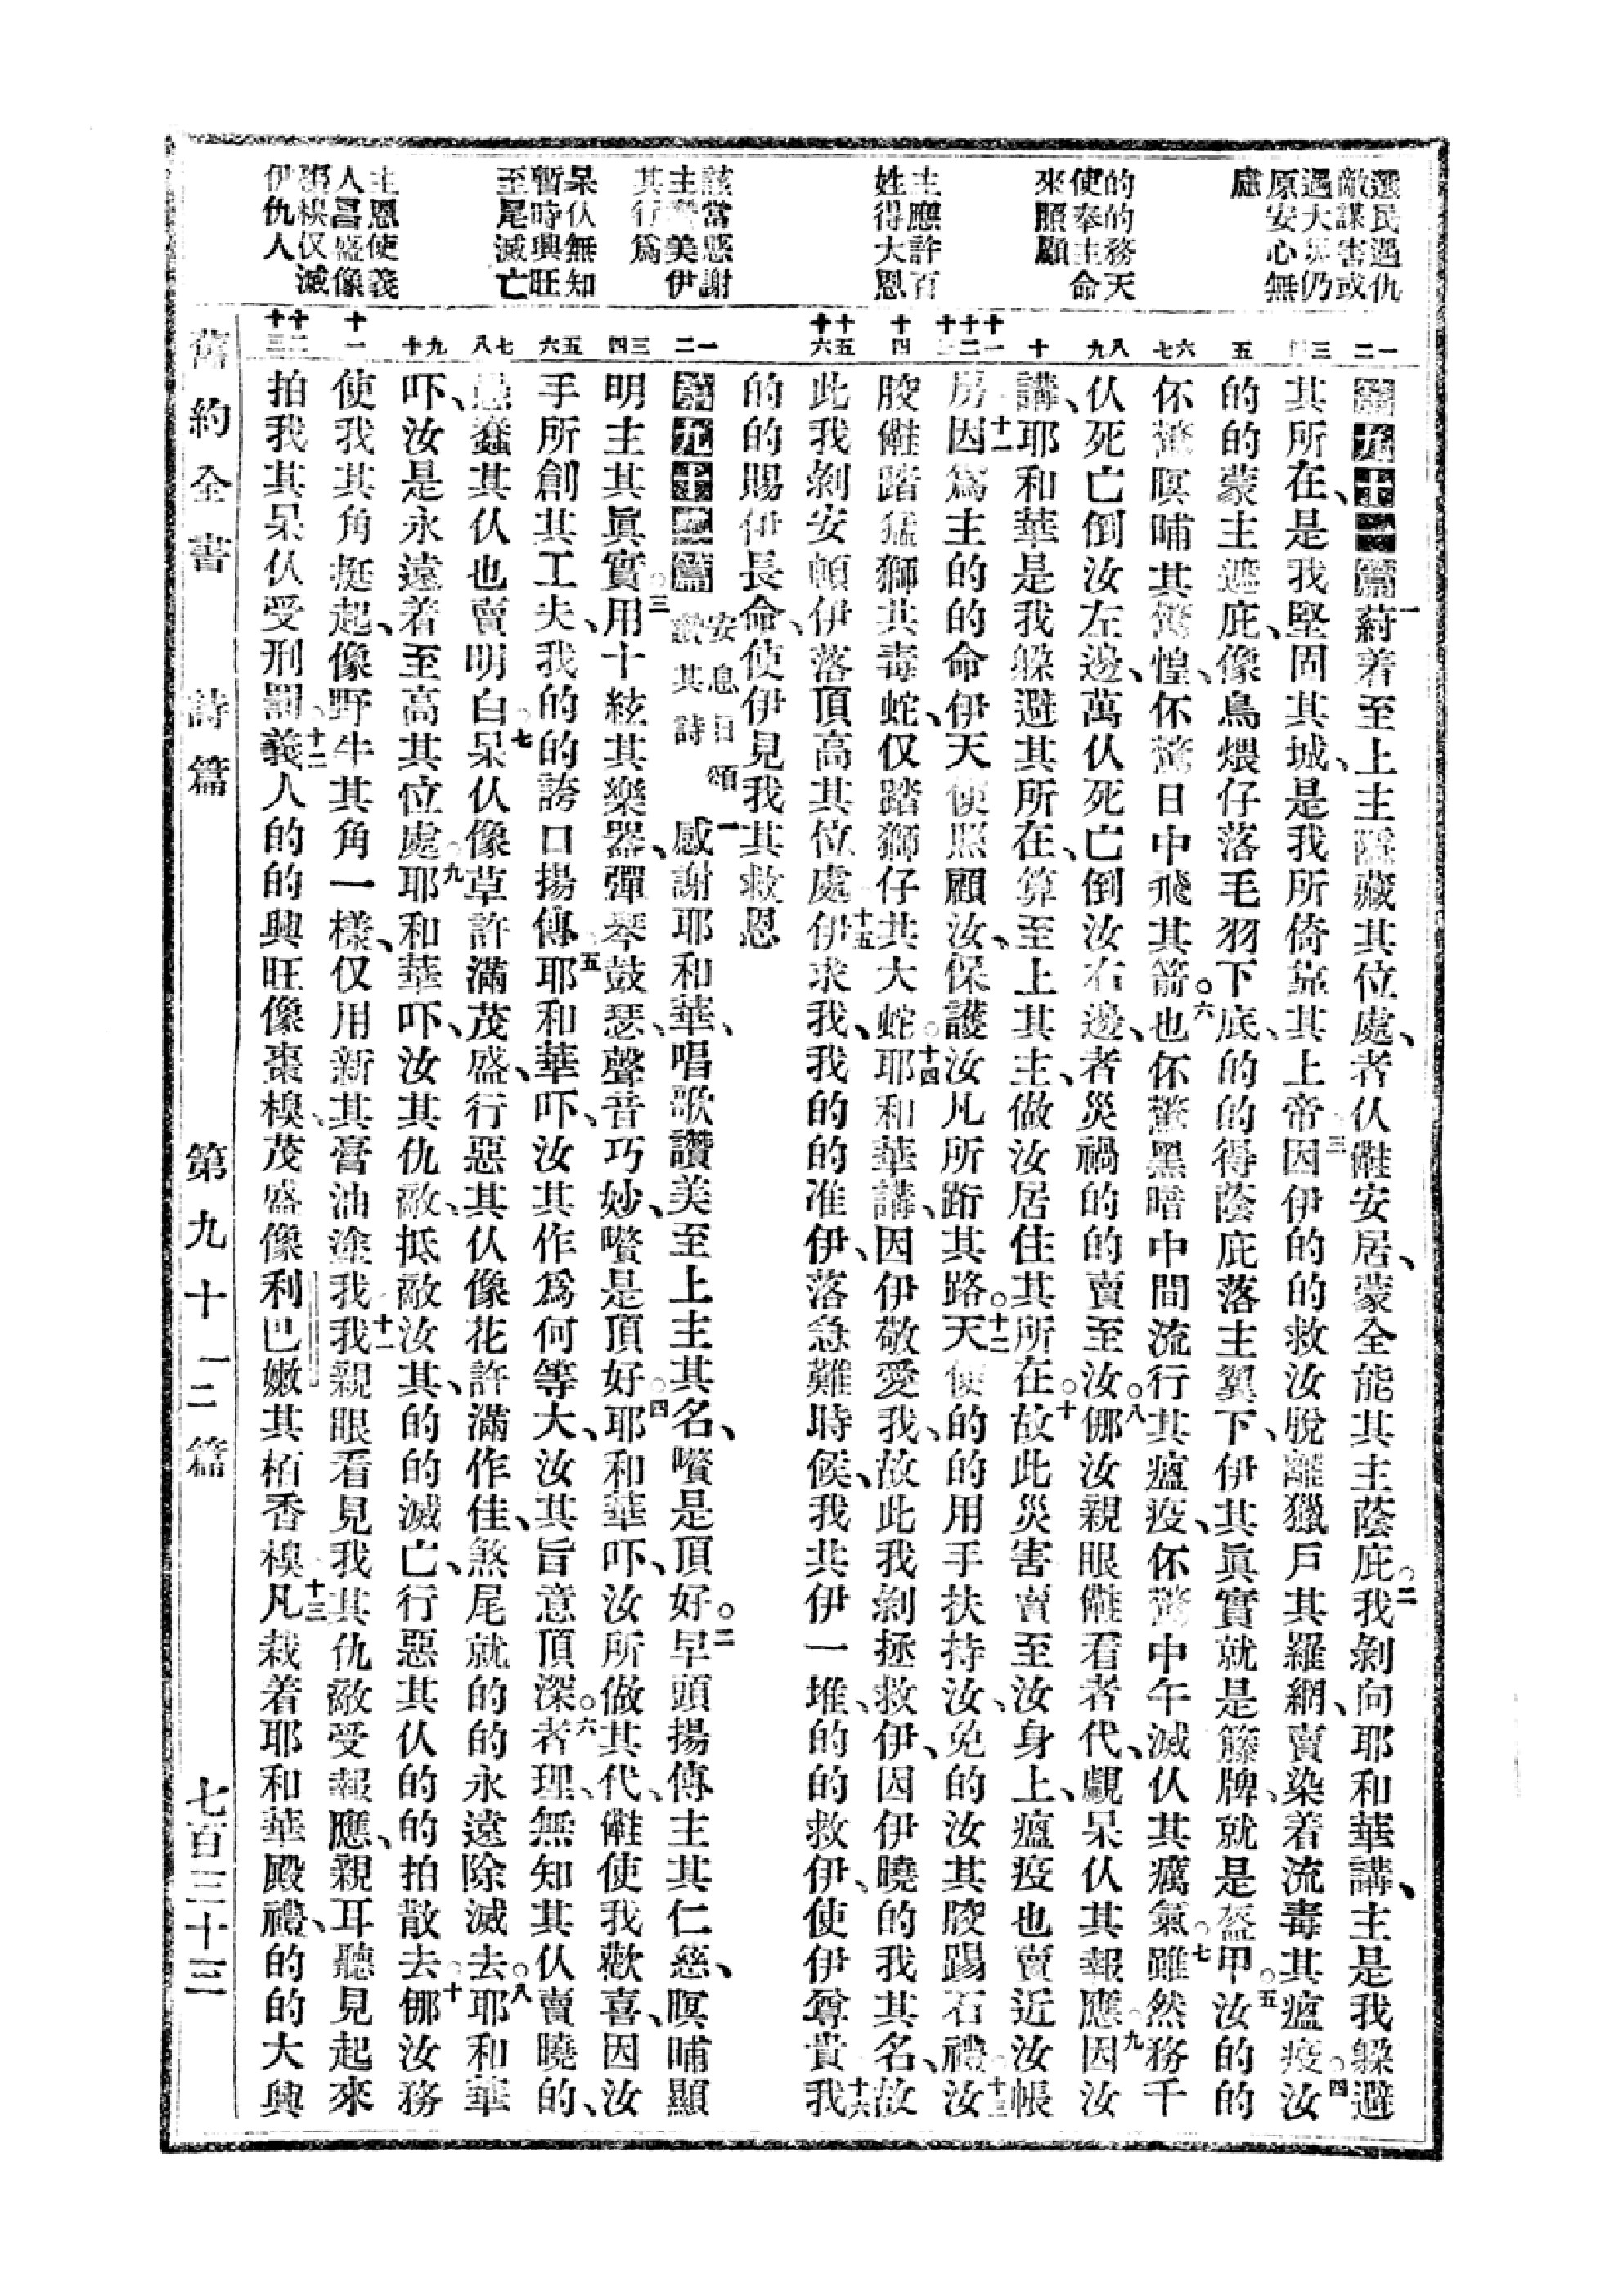 選民遇仇
敵謀害或
遇大災仍
原安心無
慮
的的務天
使奉主命
來照顧
主應許百
姓得大恩
該當感謝
主讚美伊
其行為
呆仈無知
暫時興旺
至尾滅亡
主恩使義
人昌盛像
仅滅
伊仇人
一二
三四
五
六七
八九
十
十一十二十三
十四
十五十六
一二
三四
五六
七八
九十
十一
十二十三
詩九十一篇 一 着至上主隱藏其位處、者仈䧹安居、蒙全能其主蔭庇。二我剝向耶和華講、主是我躲避
其所在、是我堅固其城、是我所倚靠其上帝、三因伊的的救汝脫離獵戶其羅網、賣染着流毒其瘟疫。四汝
的的蒙主遮庇、像鳥煨仔落毛羽下底、的的得蔭庇落主翼下、伊其眞實就是籐牌、就是盔甲。五汝的的
伓驚暝晡其驚惶、伓驚日中飛其箭。六也伓驚黑暗中間流行其瘟疫、伓驚中午滅仈其癘氣。七雖然務千
仈死亡倒汝左邊、萬仈死亡倒汝右邊、者災禍的的賣至汝。八㑚汝親眼䧹看者代、覷呆仈其報應。九因汝
講、耶和華是我躲避其所在、算至上其主、做汝居住其所在。十故此災害賣至汝身上、瘟疫也賣近汝帳
房。十一因為主的的命伊天使照顧汝、保護汝凡所跡其路。十二天使的的用手扶持汝、免的汝其骹踢石禮。十三汝
骹䧹踏猛獅共毒蛇、仅踏獅仔共大蛇。十四耶和華講、因伊敬愛我、故此我剝拯救伊、因伊曉的我其名、故
此我剝安頓伊落頂高其位處。十五伊求我、我的的准伊、落急難時候、我共伊一堆、的的救伊、使伊尊貴。十六我
的的賜伊長命、使伊見我其救恩
詩九十二篇 安息日頌讚其詩 一感謝耶和華、唱歌讚美至上主其名、囋是頂好。二早頭揚傳主其仁慈、暝晡顯
明主其眞實。三用十絃其樂器、彈琴鼓瑟、聲音巧妙、囋是頂好。四耶和華吓、汝所做其代、䧹使我歡喜、因汝
手所創其工夫、我的的誇口揚傳。五耶和華吓、汝其作為何等大、汝其旨意頂深。六者理、無知其仈賣曉的、
愚蠢其仈也賣明白。七呆仈像草許滿茂盛、行惡其仈像花許滿作佳、煞尾就的的永遠除滅去。八耶和華
吓、汝是永遠着至高其位處。九耶和華吓、汝其仇敵、抵敵汝其、的的滅亡、行惡其仈的的拍散去。十㑚汝務
使我其角挺起、像野牛其角一樣、仅用新其膏油塗我。十一我親眼看見我其仇敵受報應、親耳聽見起來
拍我其呆仈受刑罰。十二義人的的興旺像棗樹、茂盛像利巴嫩其栢香樹。十三凡栽着耶和華殿禮、的的大興
舊約全書　詩篇　第九十二篇　七百三十三